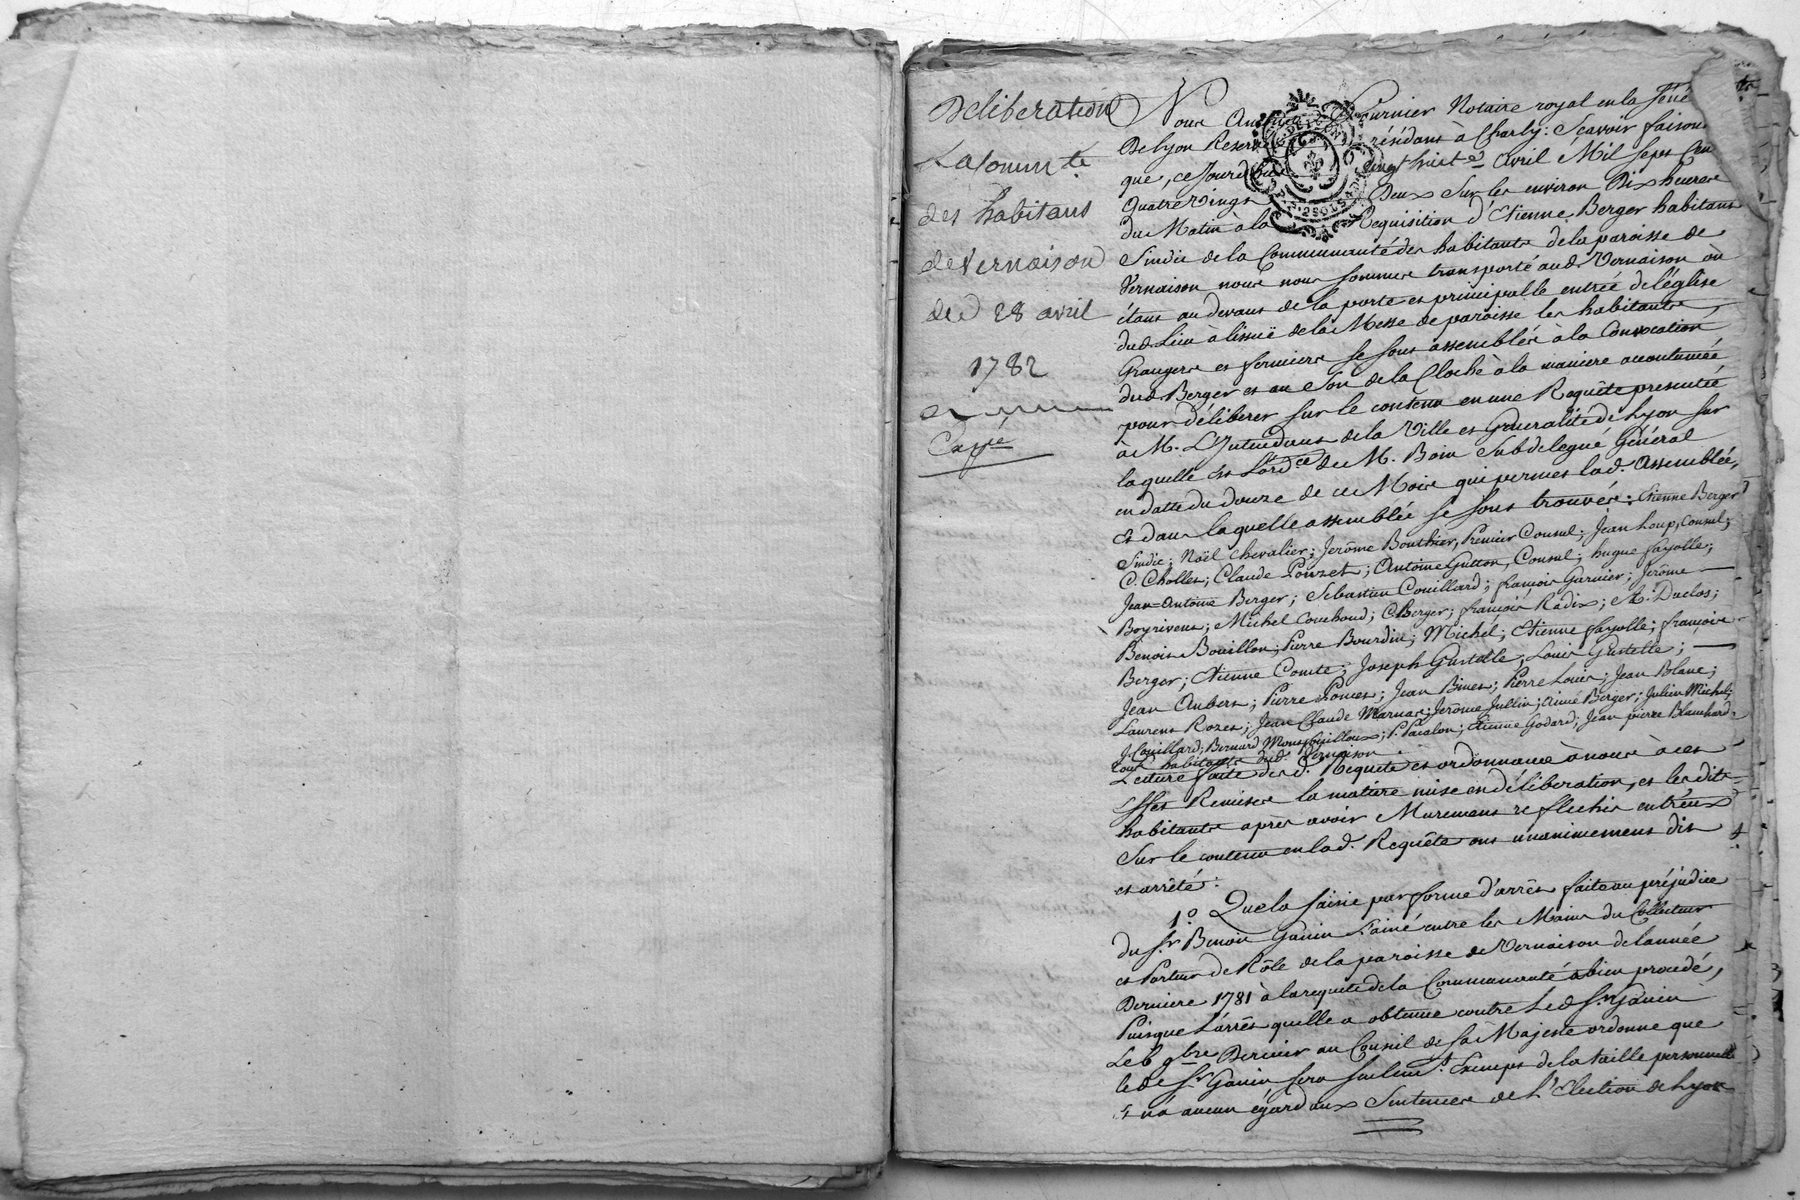 Deliberation
La Commté
des habitans
de Vernaison
du 28 avril
1782
Nous Fournier Notaire royal en la Séné
De Lyon résidant à Charly: Scavoir faisons
que, ce Jourd'hui vingt huit avril Mil Sept Cent
Quatre vingt Deux Sur les environ Dix heures
du Matin à la Requisition d'Etienne Berger habitant
Sindic de la Communauté des habitants de la paroisse de
Vernaison nous nous sommes transporté aud. Vernaison où
étant au devant de la porte et principalle entrée de l'église
dud. Lieu à lissuë de la Messe de paroisse les habitants
Grangers et fermiers se sont assemblés à la Convocation
dud. Berger et au Son de la Cloche à la maniere accoutumée
pour délibérer sur le contenu en une Requête presentée
à M. L'Intendant de la Ville et Généralité de Lyon sur
laquelle est l'ordce de M. Boin Subdelegué Général
en datte du douze de ce Mois qui permet lad. Assemblée,
Et dans laquelle assemblée se sont trouvés: Etienne Berger
Sindic; Noël Chevalier; Jerôme Bouthier, Premier Consul; Jean Loup, Consul;
C. Chollet; Claude Ponzet; Antoine Guitton, Consul; hugue fayolle;
Jean-Antoine Berger; Sebastien Couillard; françois Garnier; Jerôme
Boyrivent; Michel Couchoud; C. Berger; françois Radix; M. Duclos;
Benoit Bouillon; Pierre Bourdin; Michel; Etienne fayolle; françois
Berger; Etienne Comte; Joseph Gustelle, Louis Gustelle;
Jean Aubert; Pierre Poncet; Jean Binet; Pierre Louis; Jean Blanc;
Laurent Rozet; Jean Claude Marnas; Jerôme Jullin; Aimé Berger; Julien Michel;
J. Couillard; Bernard; P. Pacalon; Etienne Godard; Jean pierre Blanchard
tous habitants dud. Vernaison.
Lecture faite desd. Requete et ordonnance à nous à ces
effet Remises la matiere mise en déliberation, et les dits
habitants après avoir Murement reflechis entr'eux
Sur le contenu en lad. Requête ont unanimement dit
et arrêté:
1.º Que la saisie par forme d'arrêt faite au préjudice
du Sr. Benoit Gonin L'ainé entre les Mains du Collecteur
et Porteur de Rôle de la paroisse de Vernaison de l'année
Derniere 1781 à la requete de la Communauté a bien procedé,
Puisque L'arrêt quelle a obtenu contre Led. Sr. Gonin
Le 6 9bre Dernier au Conseil de Sa Majesté ordonne que
led. Sr. Gonin sera seulemt. Exempt de la taille personnelle
Et n'a aucun égard aux Sentences de l'Election de Lyon